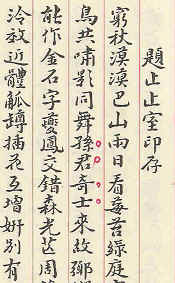 題止止室印存
窮秋漠漠巴山雨日看莓苔綠庭
鳥共嘯影同舞孫君奇士來故鄉
能作金石字夔鳳交錯森光芒周
泠放近體觚罇插花互增妍別有